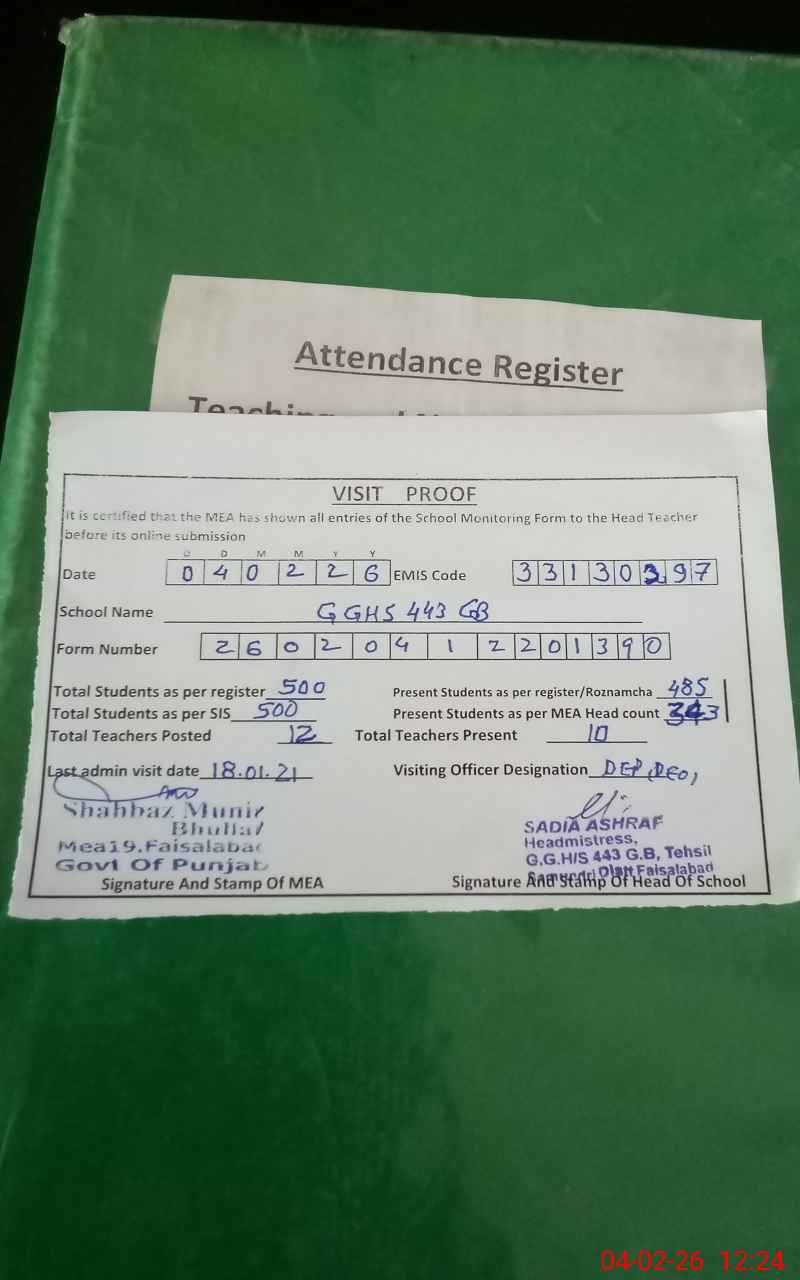 Attendance Register
VISIT PROOF
It is certified that the MEA has shown all entries of the School Monitoring Form to the Head Teacher
before its online submission
D D M M Y Y
Date 0 4 0 2 2 6 EMIS Code 3 3 1 3 0 3 9 7
School Name GGHS 443 GB
Form Number 2 6 0 2 0 4 1 2 2 0 1 3 9 0
Total Students as per register 500 Present Students as per register/Roznamcha 485
Total Students as per SIS 500 Present Students as per MEA Head count
Total Teachers Posted 12 Total Teachers Present 10
Last admin visit date 18.01.21 Visiting Officer Designation DEP, DEO,
Shahbaz Munir
Bhullar
Mea19.Faisalabad
Govt Of Punjab
Signature And Stamp Of MEA
SADIA ASHRAF
Headmistress,
G.G.H/S 443 G.B, Tehsil
Faisalabad
Signature And Stamp Of Head Of School
04-02-26 12:24